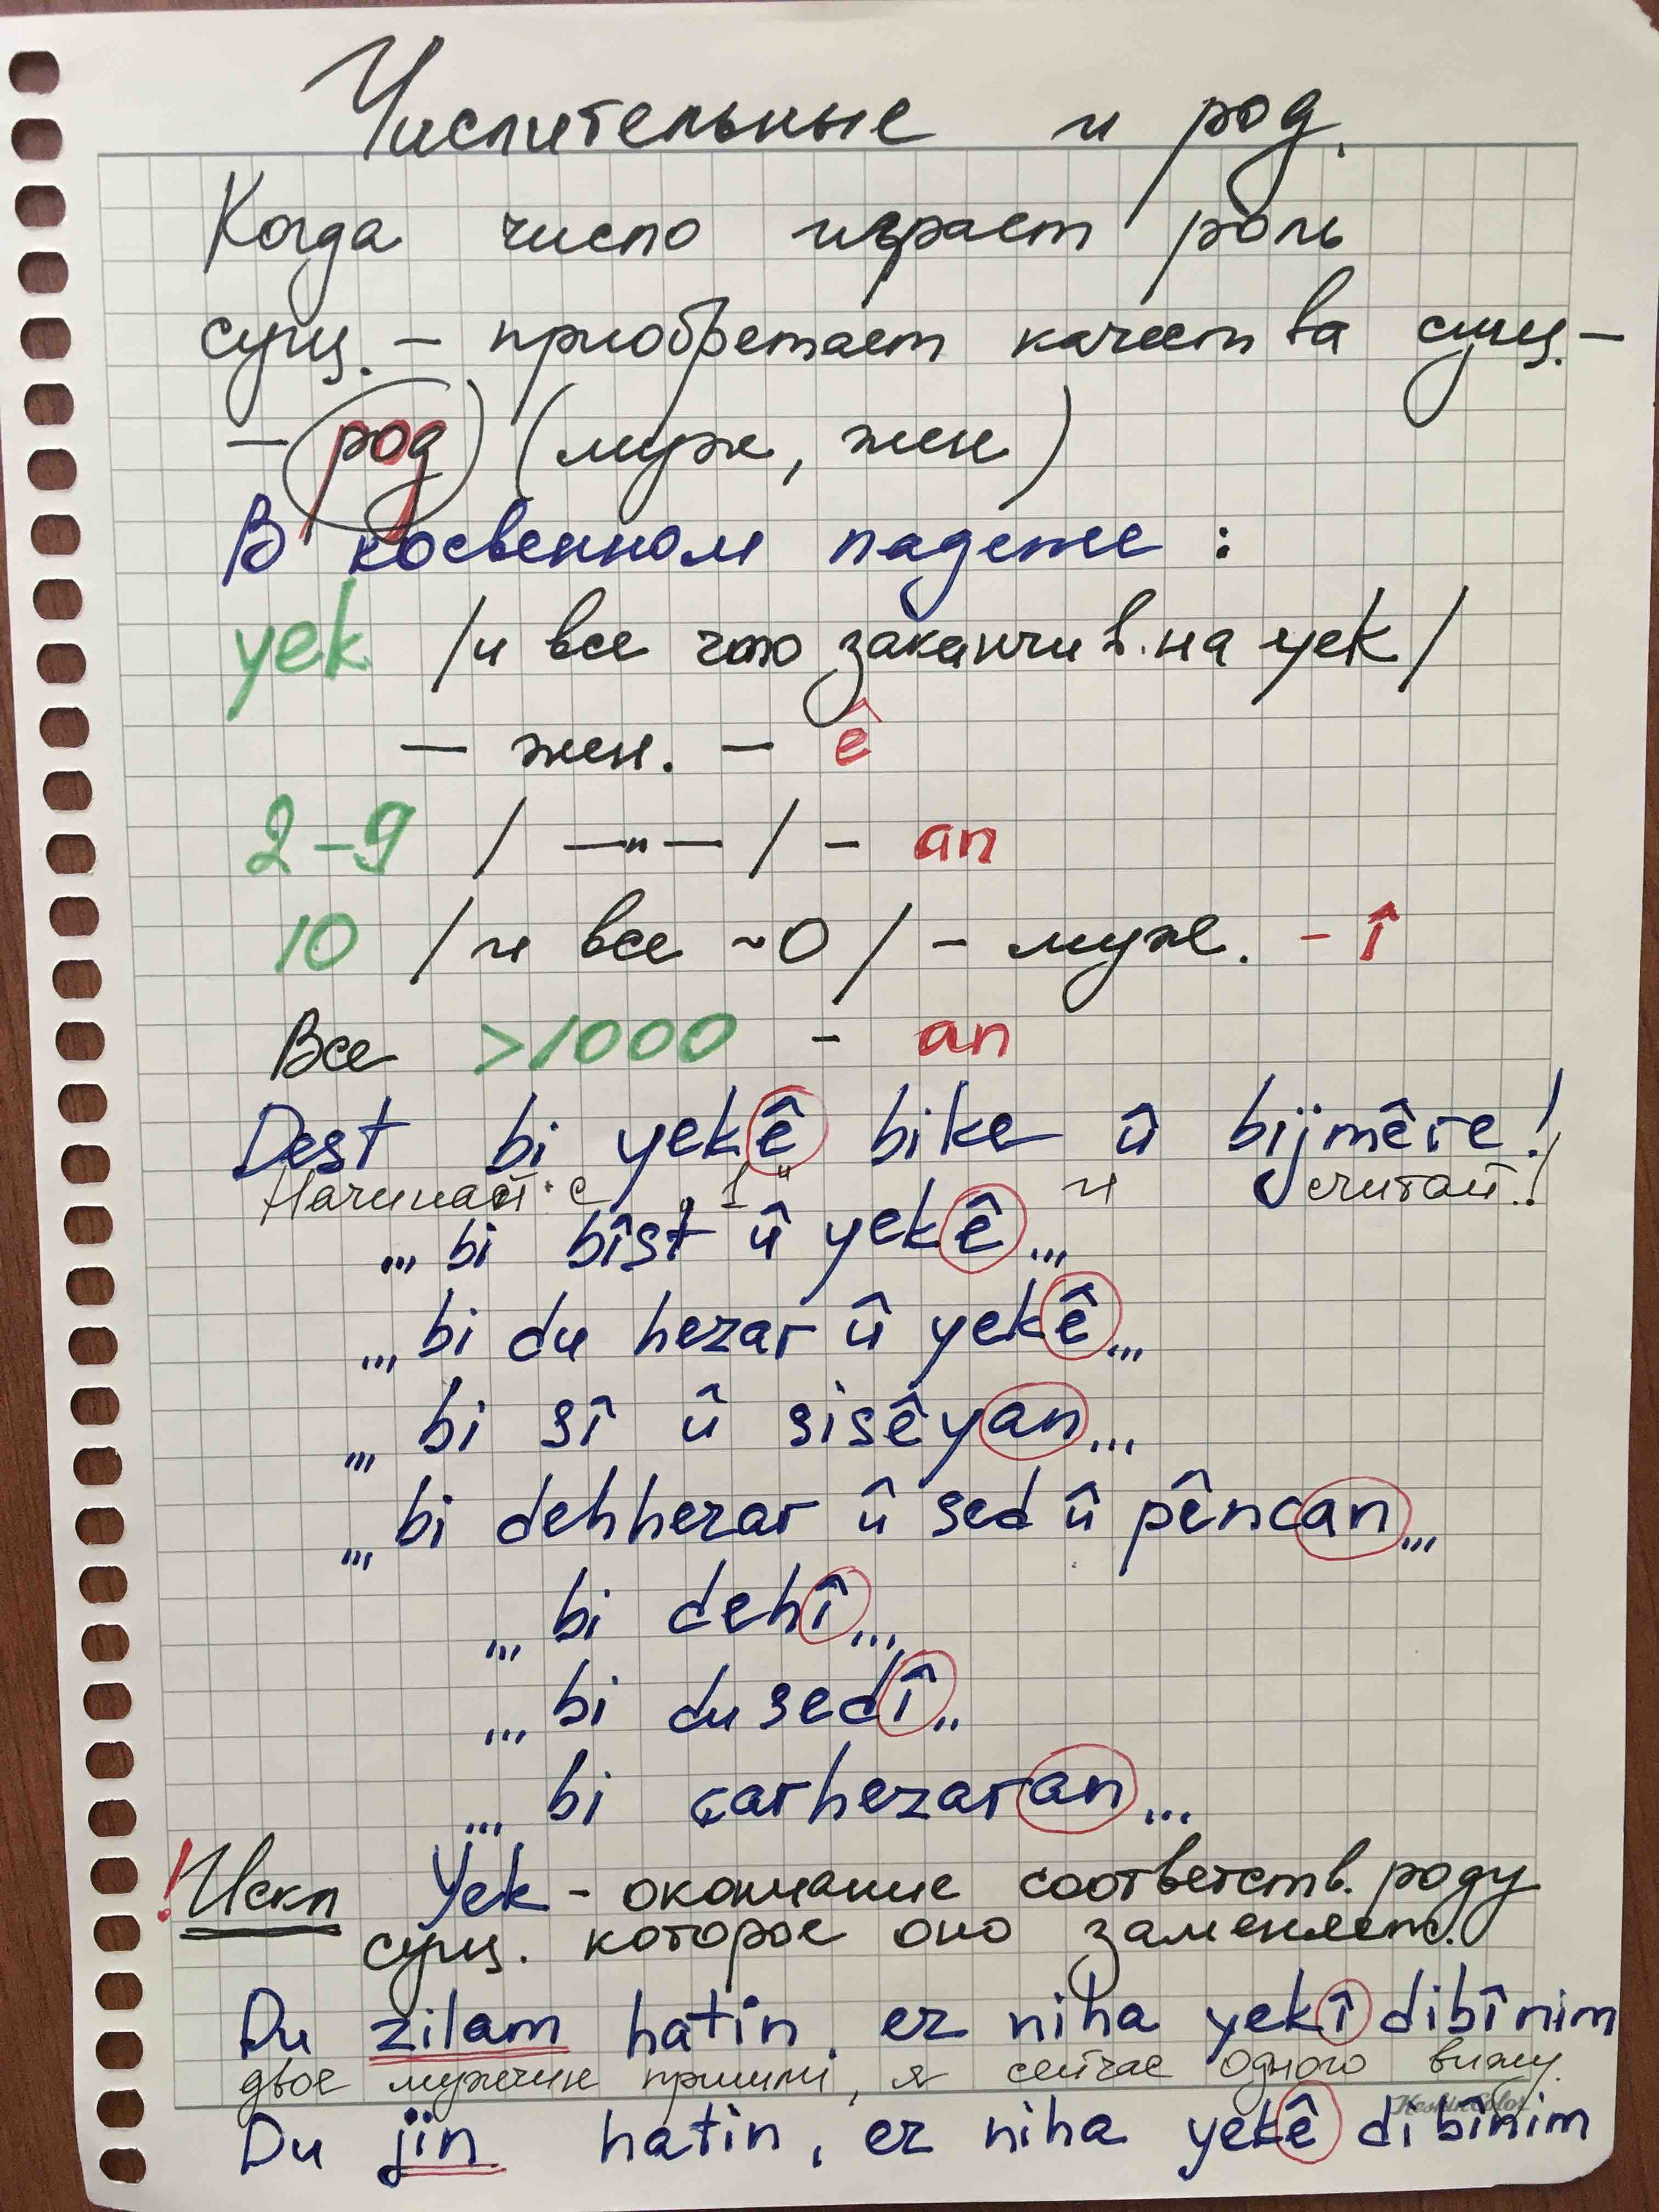 Числительные и род.
Когда число играет роль
сущ. – приобретает качества сущ. –
– род (муж, жен)
В косвенном падеже :
yek /и все что заканчив. на yek/
– жен. – ê
2-9 / —"— / - an
10 /и все ~0/ - муж. - î
Все >1000 - an
Dest bi yekê bike û bijmêre!
Начинай с „1" и считай!
... bi bîst û yekê ...
... bi du hezar û yekê ...
... bi sî û sisêyan ...
... bi dehhezar û sed û pêncan ...
... bi dehî ...
... bi dusedî ..
... bi çarhezaran ...
! Искл Yek - окончание соответств. роду
сущ. которое оно заменяет.
Du zilam hatin, ez niha yekî dibînim
двое мужчин пришли, я сейчас одного вижу.
KeskinColor
Du jin hatin, ez niha yekê dibînim